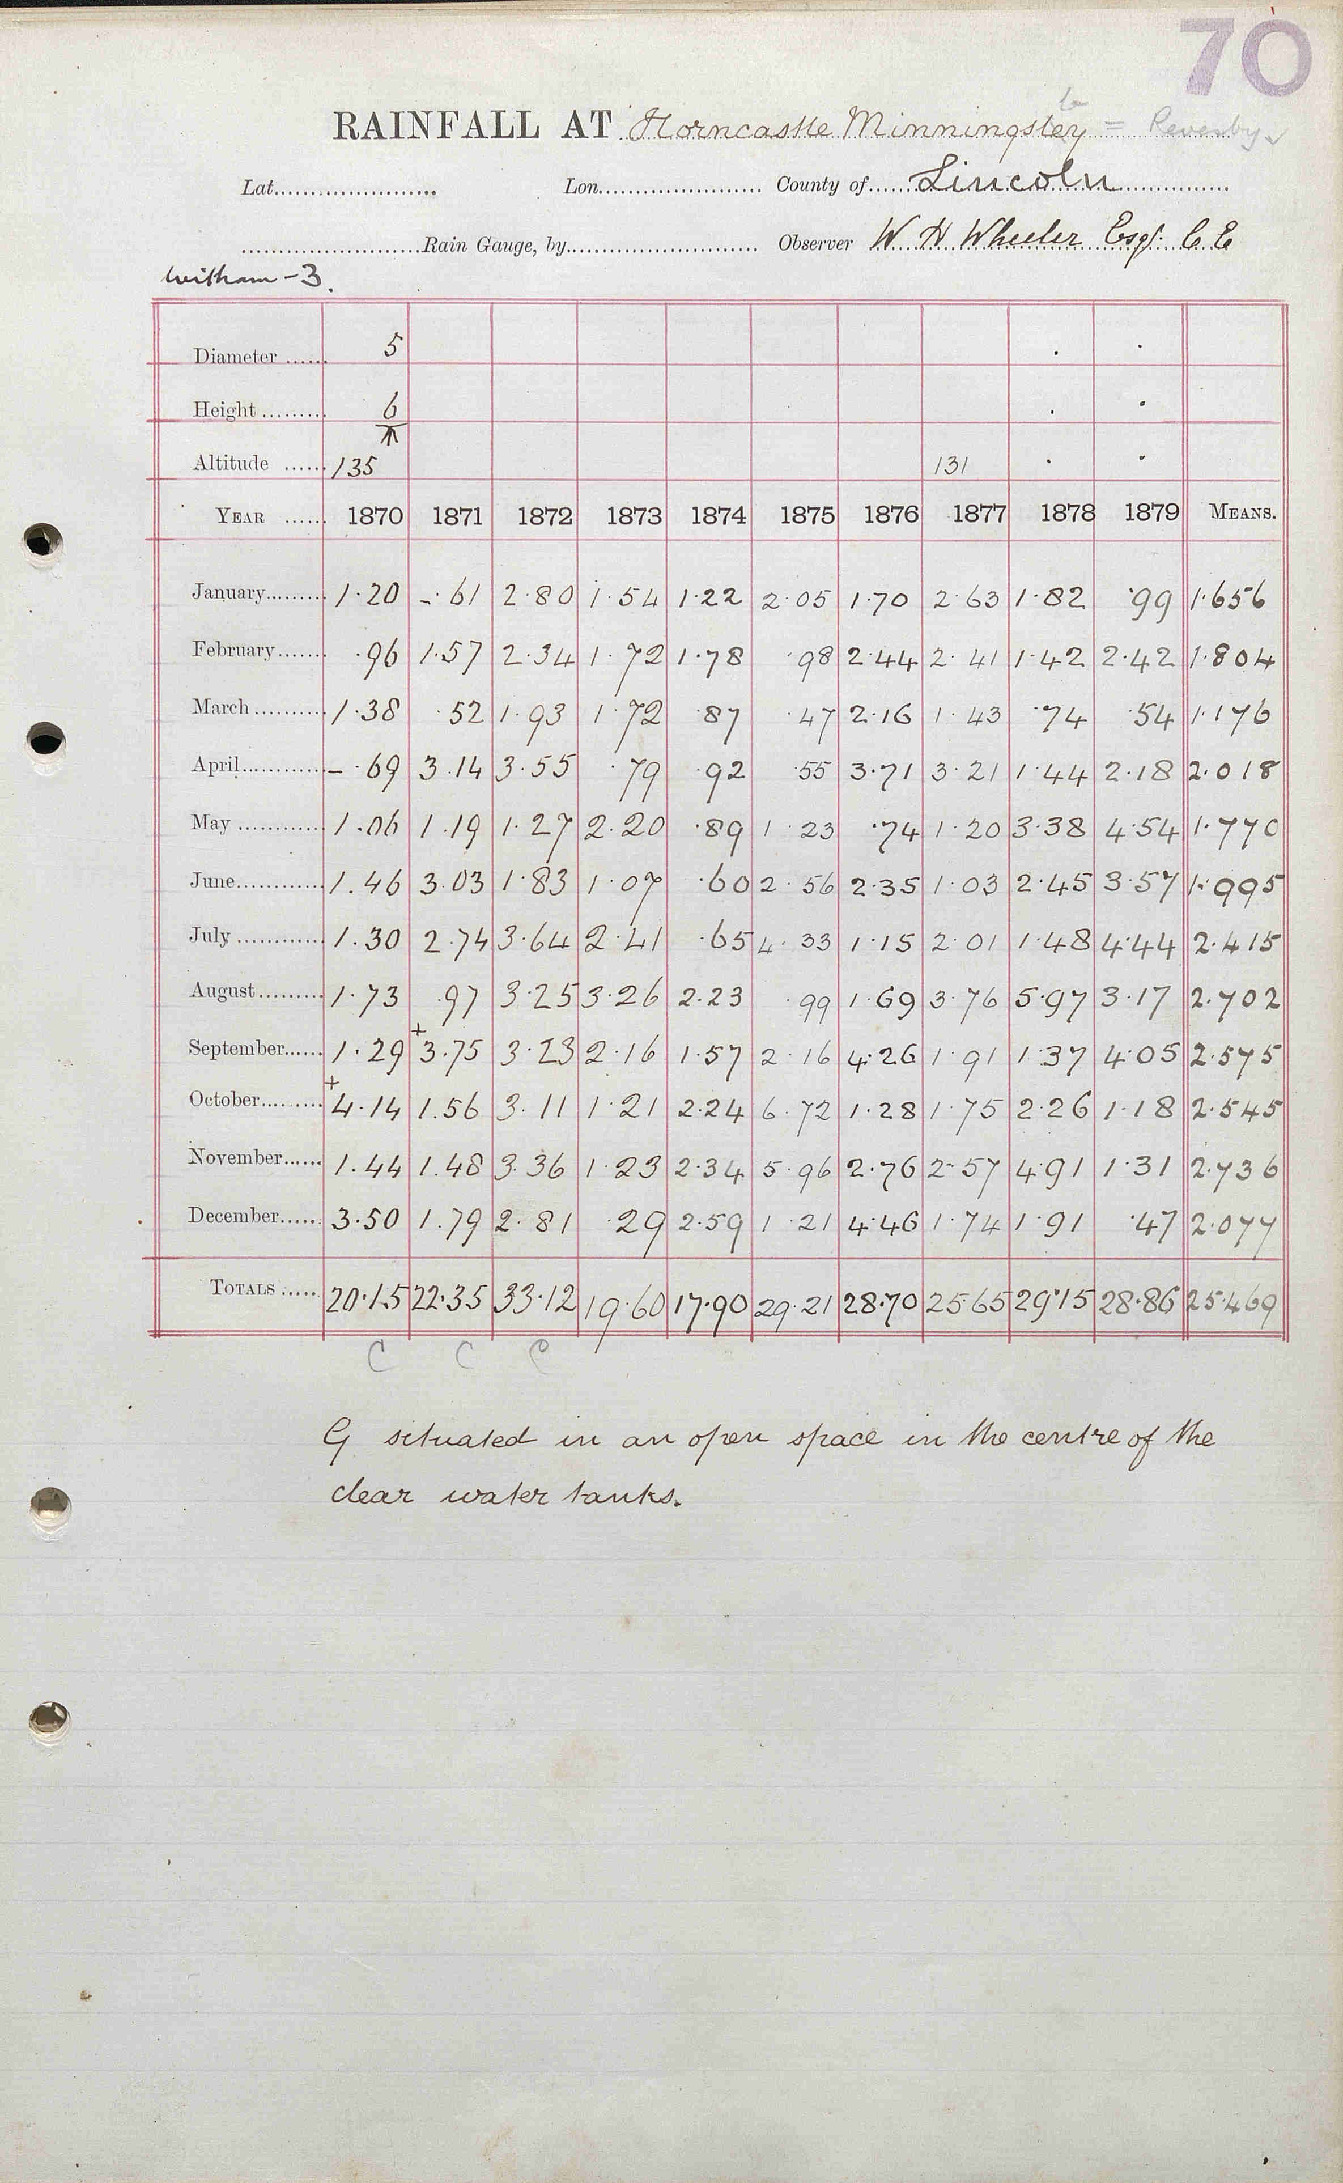 70
RAINFALL AT Horncastle Minningsley = Revesby
Lat. Lon. County of Lincoln
Rain Gauge, by Observer W H Wheeler Esqr. C E
Witham - 3.
Diameter 5
Height 6
Altitude 135 131
YEAR 1870 1871 1872 1873 1874 1875 1876 1877 1878 1879 MEANS.
January 1.20 -.61 2.80 1.54 1.22 2.05 1.70 2.63 1.82 .99 1.656
February .96 1.57 2.34 1.72 1.78 .98 2.44 2.41 1.42 2.42 1.804
March 1.38 .52 1.93 1.72 .87 .47 2.16 1.43 .74 .54 1.176
April -.69 3.14 3.55 .79 .92 .55 3.71 3.21 1.44 2.18 2.018
May 1.06 1.19 1.27 2.20 .89 1.23 .74 1.20 3.38 4.54 1.770
June 1.46 3.03 1.83 1.07 .60 2.56 2.35 1.03 2.45 3.57 1.995
July 1.30 2.74 3.64 2.41 .65 4.33 1.15 2.01 1.48 4.44 2.415
August 1.73 .97 3.25 3.26 2.23 .99 1.69 3.76 5.97 3.17 2.702
September 1.29 +3.75 3.23 2.16 1.57 2.16 4.26 1.91 1.37 4.05 2.575
October +4.14 1.56 3.11 1.21 2.24 6.72 1.28 1.75 2.26 1.18 2.545
November 1.44 1.48 3.36 1.23 2.34 5.96 2.76 2.57 4.91 1.31 2.736
December 3.50 1.79 2.81 .29 2.59 1.21 4.46 1.74 1.91 .47 2.077
TOTALS 20.15 22.35 33.12 19.60 17.90 29.21 28.70 25.65 29.15 28.86 25.469
C C C
G situated in an open space in the centre of the
clear water tanks.